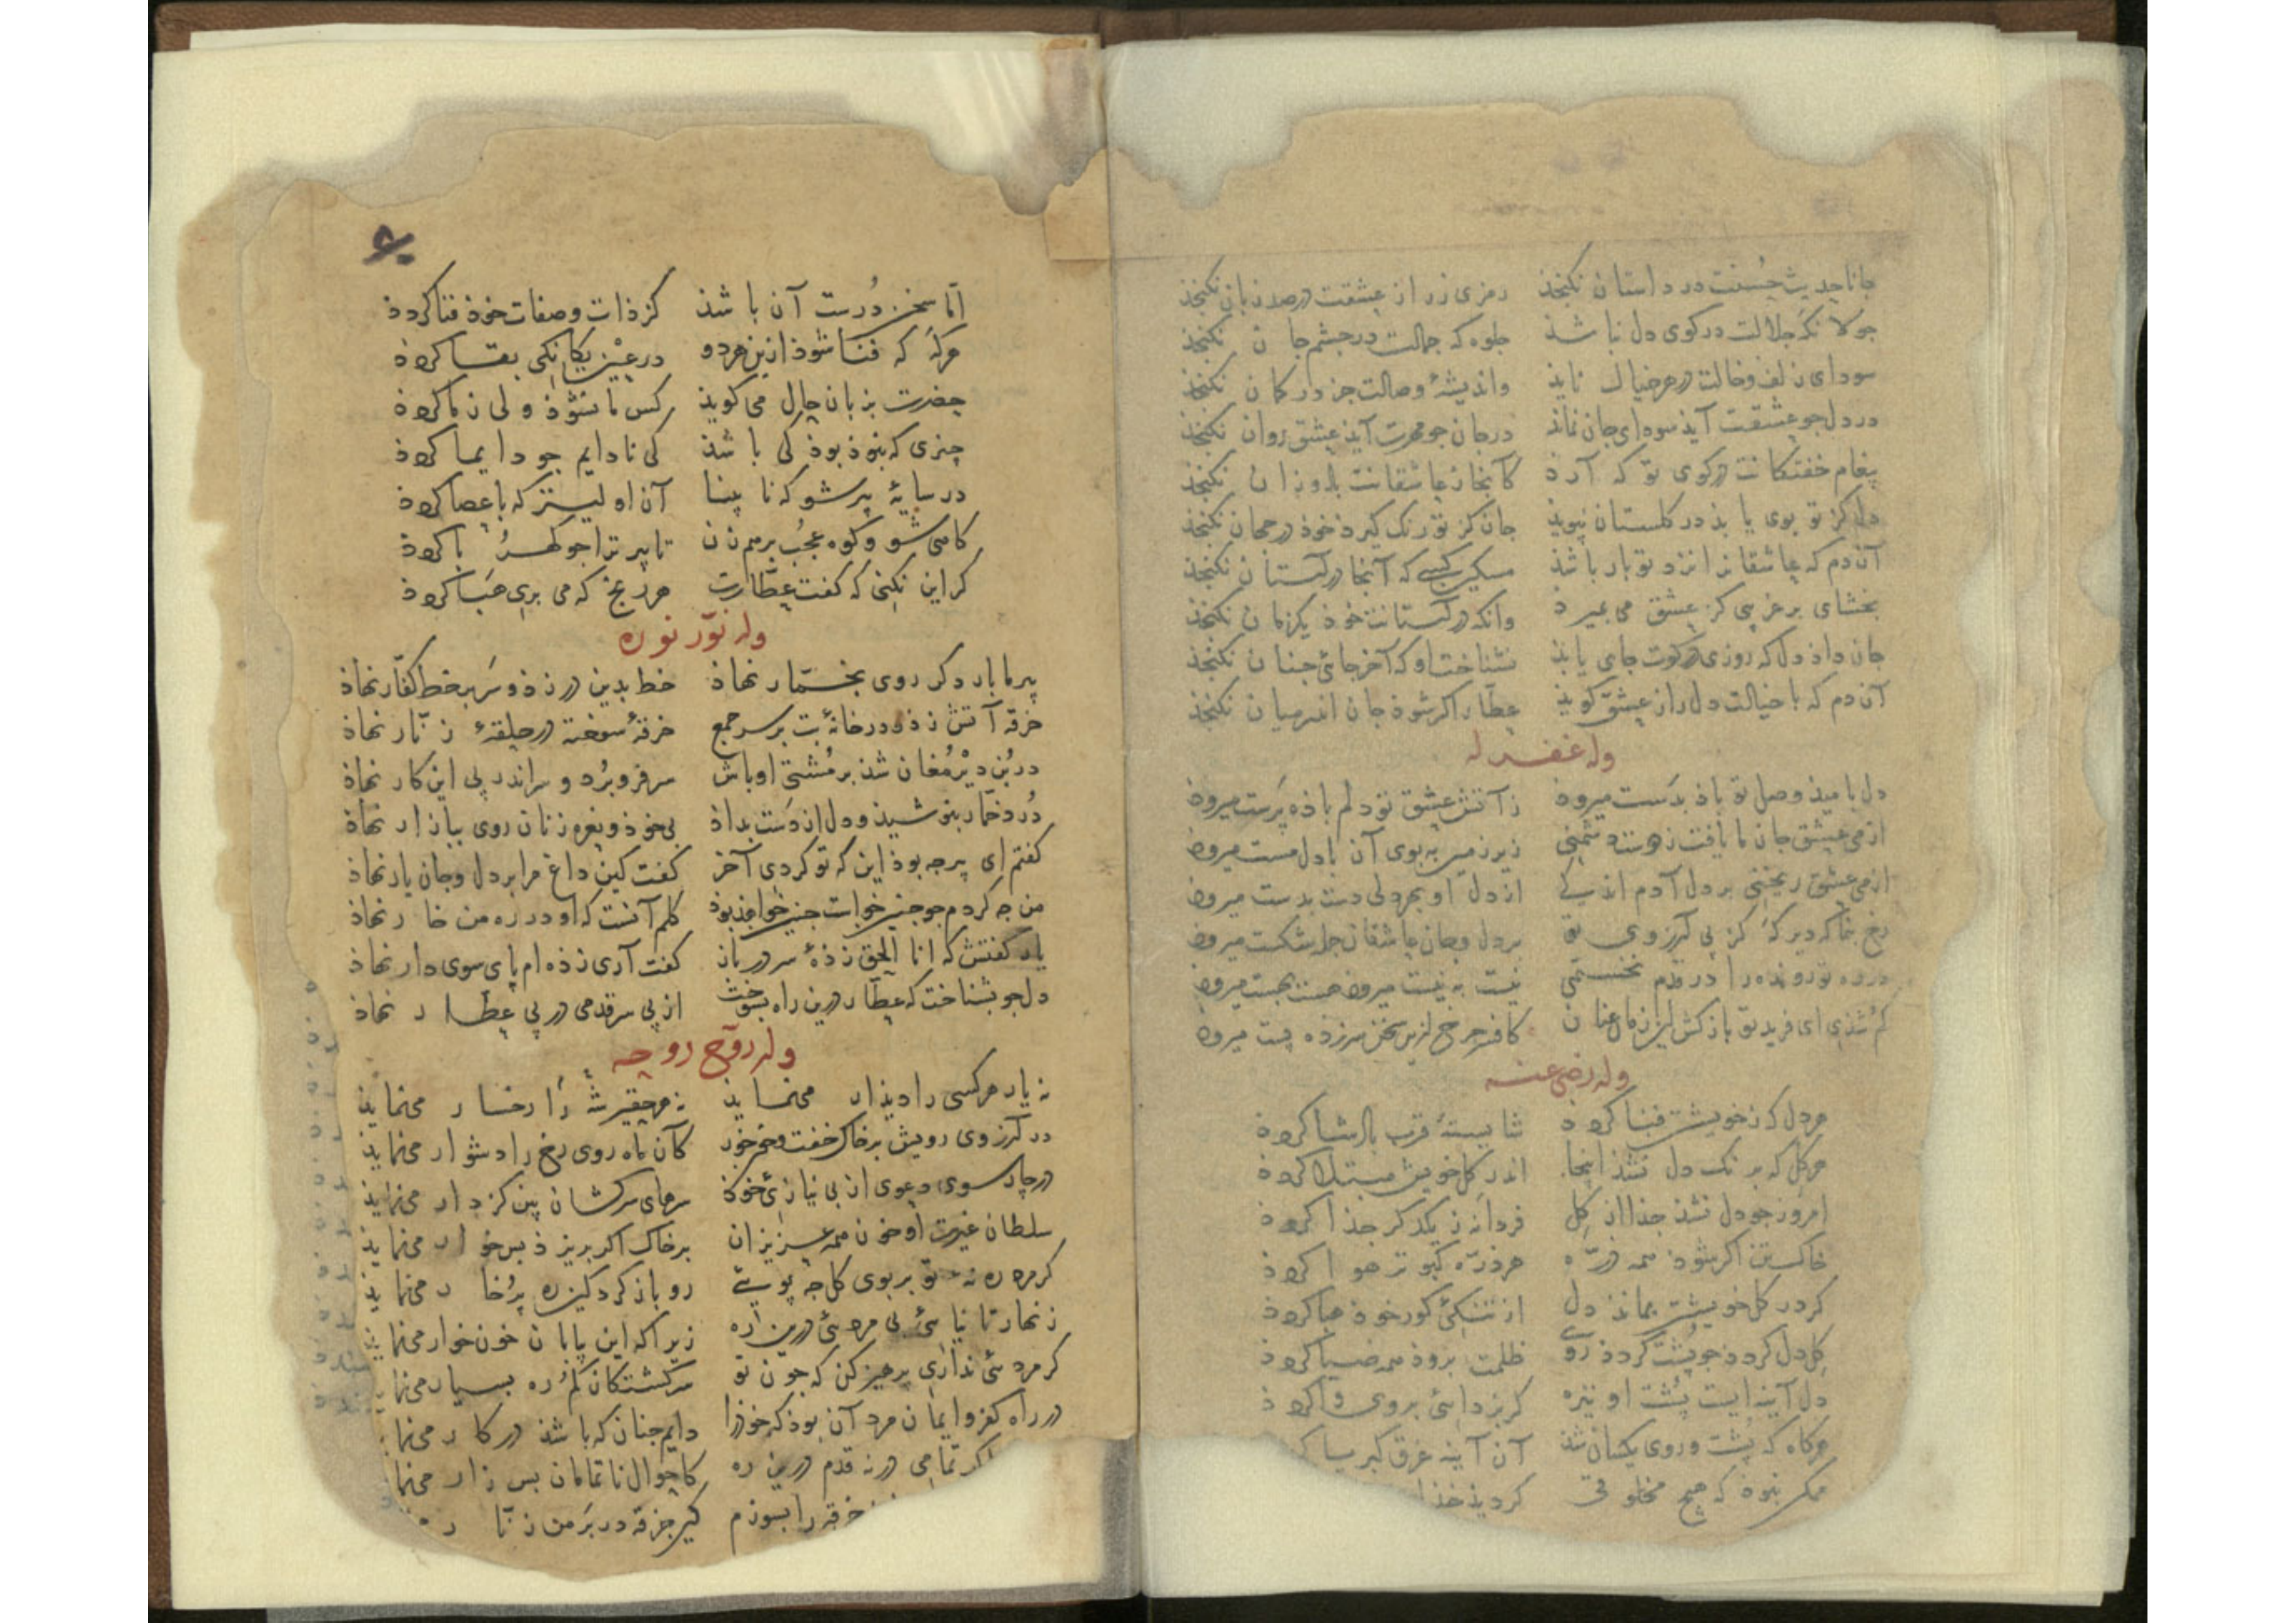 جانا حدیث حسنت در داستان نکنجذ رمزی ز راز عشقت در صد زبان نکنجذ
جولانکه جلالت در کوی دل نباشذ جلوه که جمالت در جشم جان نکنجذ
سودای زلف و خالت در هر خیال نایذ واندیشهٔ وصالت جز در کمان نکنجذ
در دل جو عشقت آیذ سودای جان نماند در جان جو مهرت آیذ عشق روان نکنجذ
پیغام خستکانت در کوی تو که آرذ کانجا ز عاشقانت باذ وزان نکنجذ
دل کز تو بوی یابذ در کلستان نپویذ جان کز تو رنک کیرذ خوذ در جهان نکنجذ
آن دم که عاشقانرا نزد تو بار باشذ مسکین کسی که آنجا در آستان نکنجذ
بخشای بر غریبی کز عشق می بمیرد وانکه در آستانت خوذ یکزمان نکنجذ
جان داذ دل که روزی در کوت جای یابذ نشناخت او که آخر جائی جنان نکنجذ
آن دم که با خیالت دل راز عشق کویذ عطار اکر شوذ جان اندر میان نکنجذ
وله غفر له
دل بامیذ وصل تو باذ بدست میروذ ز آتش عشق تو دلم باذه پرست میروذ
از می عشق جان ما یافت ز دوست شمی زیر زمین به بوی آن با دل مست میروذ
از می عشق ریختی بر دل آدم اندکی از دل او بهر دلی دست بدست میروذ
رخ بنما که دیر که کز پی آرزوی تو بر دل و جان عاشقان جمله شکست میروذ
در ره تو رونده را در قدم نخستمی نیست به نیست میروذ هست بهست میروذ
کم شدی ای فرید تو باز کش این زمان عنان کافر جرخ ازین سخن سرزده پست میروذ
وله رضی عنه
هر دل که ز خویشتن فنا کردذ شایستهٔ قرب باذشا کردذ
هر کل که برنک دل نشذ اینجا اندر کل خویش مبتلا کردذ
امروز جو دل نشذ جذا از کل فردا نه ز یکدکر جذا کردذ
خاک تن اکر شوذ همه ذره هر ذره کبوتر هوا کردذ
کر در کل خویشتن بماند دل از تنکی کور خوذ هبا کردذ
کل دل کردذ جو پشت کردذ رو ظلمت بروذ همه ضیا کردذ
دل آینه ایست پشت او تیره کر بزدائی بروی وا کردذ
هرکاه که پشت و روی یکسان شذ آن آینه غرق کبریا کر
ممکن نبوذ که هیچ مخلوقی کردیذ خذا
اما سخن درست آن باشذ کز ذات و صفات خوذ فنا کردذ
هرکه که فنا شوذ ازین هر دو در عین یکانکی بقا کردذ
حضرت بزبان حال می کویذ کس ما نشوذ ولی ز ما کردذ
چیزی که نبوذ بوذ کی باشذ کی نادایم جو دایما کردذ
در سایهٔ پیر شو که نابینا آن اولیتر که با عصا کردذ
کاهی شو و کوه عجب برهم زن تا پیر ترا جو کهربا کردذ
کر این نکنی که کفت عطارت هر رنج که می بری هبا کردذ
وله نور نوره
پیر ما بار دکر روی بخمار نهاذ خط بدین در زذ و سر بر خط کفار نهاذ
خرقه آتش زذ و در خانهٔ بت بر سر جمع خرقهٔ سوخته در حلقهٔ زنار نهاذ
در بن دیر مغان شذ بر مشتی اوباش سر فرو برد و سر اندر پی این کار نهاذ
درد خمار بنوشیذ و دل از دست بداذ بی خوذ و نعره زنان روی ببازار نهاذ
کفتم ای پیر جه بوذ این که تو کردی آخر کفت کین داغ مرا بر دل و جان یار نهاذ
من جه کردم جو جنین خواست جنین خواهذ بوذ کلم آنست که او در ره من خار نهاذ
باز کفتش که انا الحق زذهٔ سر در باز کفت آری زذه ام پای سوی دار نهاذ
دل جو بشناخت که عطار درین راه بسوخت از پی سر قدمی در پی عطار نهاذ
وله روح روحه
نه یار هرکسی را دیذار می نمایذ نه هر حقیر شه را رخسار می نمایذ
در آرزوی رویش بر خاک خفت و خون خور کان ماه روی رخ را دشوار می نمایذ
در چار سوی دعوی از بی نیازی خوذ سرهای سرکشان بین کز دار می نمایذ
سلطان غیرت او خون همه عزیزان بر خاک اکر بریزذ بس خوار می نمایذ
کر مرد ره نهٔ تو بر بوی کل جه پویی رو باز کرد کین ره پرخار می نمایذ
زنهار تا نیائی بی مردئی درین ره زیرا که این پاپان خون خوار می نمایذ
کر مردئی نداری پرهیز کن که جون تو سرکشتکان کم ره بسیار می نما
در راه کفر و ایمان مرد آن بوذ که خوذرا دایم جنان که باشذ در کار می نما
اکر تمامی در نه قدم درین ره کاحوال ناتمامان بس زار می نما
خرقه را بسوزم کین خرقه در بر من زنار